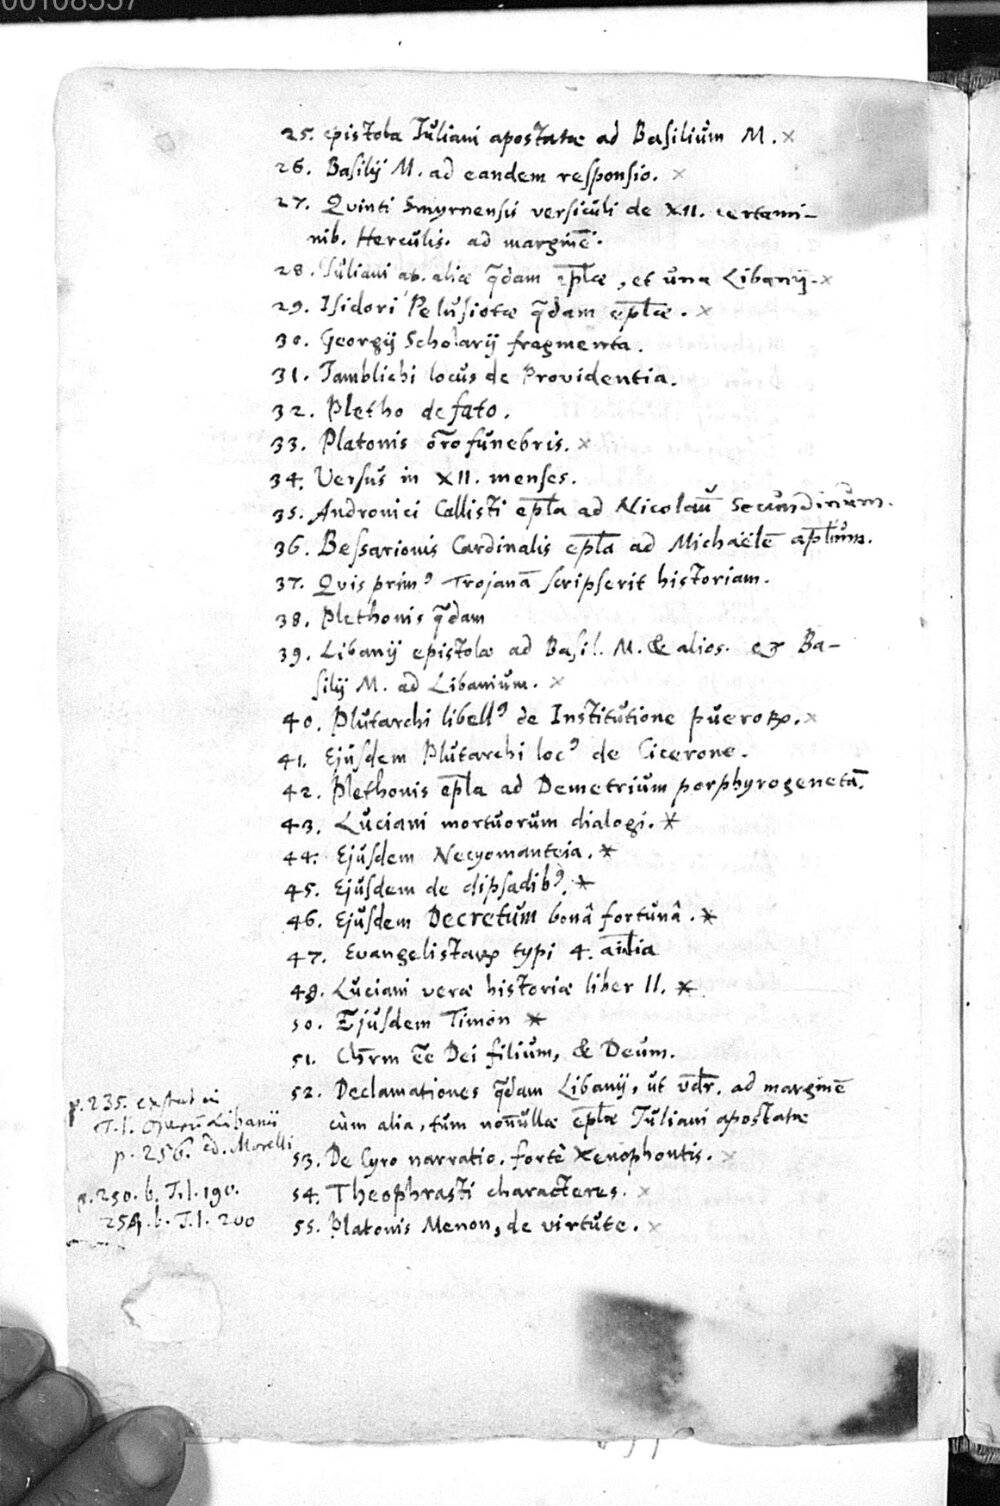 00108557
25. epistola Iuliani apostatæ ad Basilium M. ×
26. Basilij M. ad eandem responsio. ×
27. Quinti Smyrnensis versiculi de XII. certami-
nib. Herculis. ad marginē.
28. Iuliani ap. aliæ q̄dam ep̄læ, et una Libanij. ×
29. Isidori Pelusiotæ q̄dam ep̄læ. ×
30. Georgij Scholarij fragmenta.
31. Iamblichi locus de Providentia.
32. Pletho de fato.
33. Platonis orō funebris. ×
34. Versus in XII. menses.
35. Andronici Callisti ep̄la ad Nicolaū Secundinum.
36. Bessarionis Cardinalis ep̄la ad Michaelē ap̄lium.
37. Quis primꝰ Trojanā scripserit historiam.
38. Plethonis q̄dam
39. Libanij epistolæ ad Basil. M. & alios. et Ba-
silij M. ad Libanium. ×
40. Plutarchi libellꝰ de Institutione pueroꝝ. ×
41. Ejusdem Plutarchi locꝰ de Cicerone.
42. Plethonis ep̄la ad Demetrium porphyrogenetā.
43. Luciani mortuorum dialogi. *
44. Ejusdem Necyomanteia. *
45. Ejusdem de dipsadibꝰ. *
46. Ejusdem Decretum bonâ fortunâ. *
47. Evangelistaꝝ typi 4. aīalia
48. Luciani veræ historiæ liber II. *
50. Ejusdem Timon *
51. Chr̄m ēē Dei filium, & Deum.
52. Declamationes q̄dam Libanij, ut vd̄r. ad marginē
cùm alia, tùm non̄ullæ ep̄læ Iuliani apostatæ
p. 235. extat in
T. I. Operū Libanii
p. 256. ed. Morelli
53. De Cyro narratio. fortè Xenophontis. ×
p. 250. b. T. I. 190.
54. Theophrasti characteres. ×
254. b. T. I. 200
55. Platonis Menon, de virtute. ×